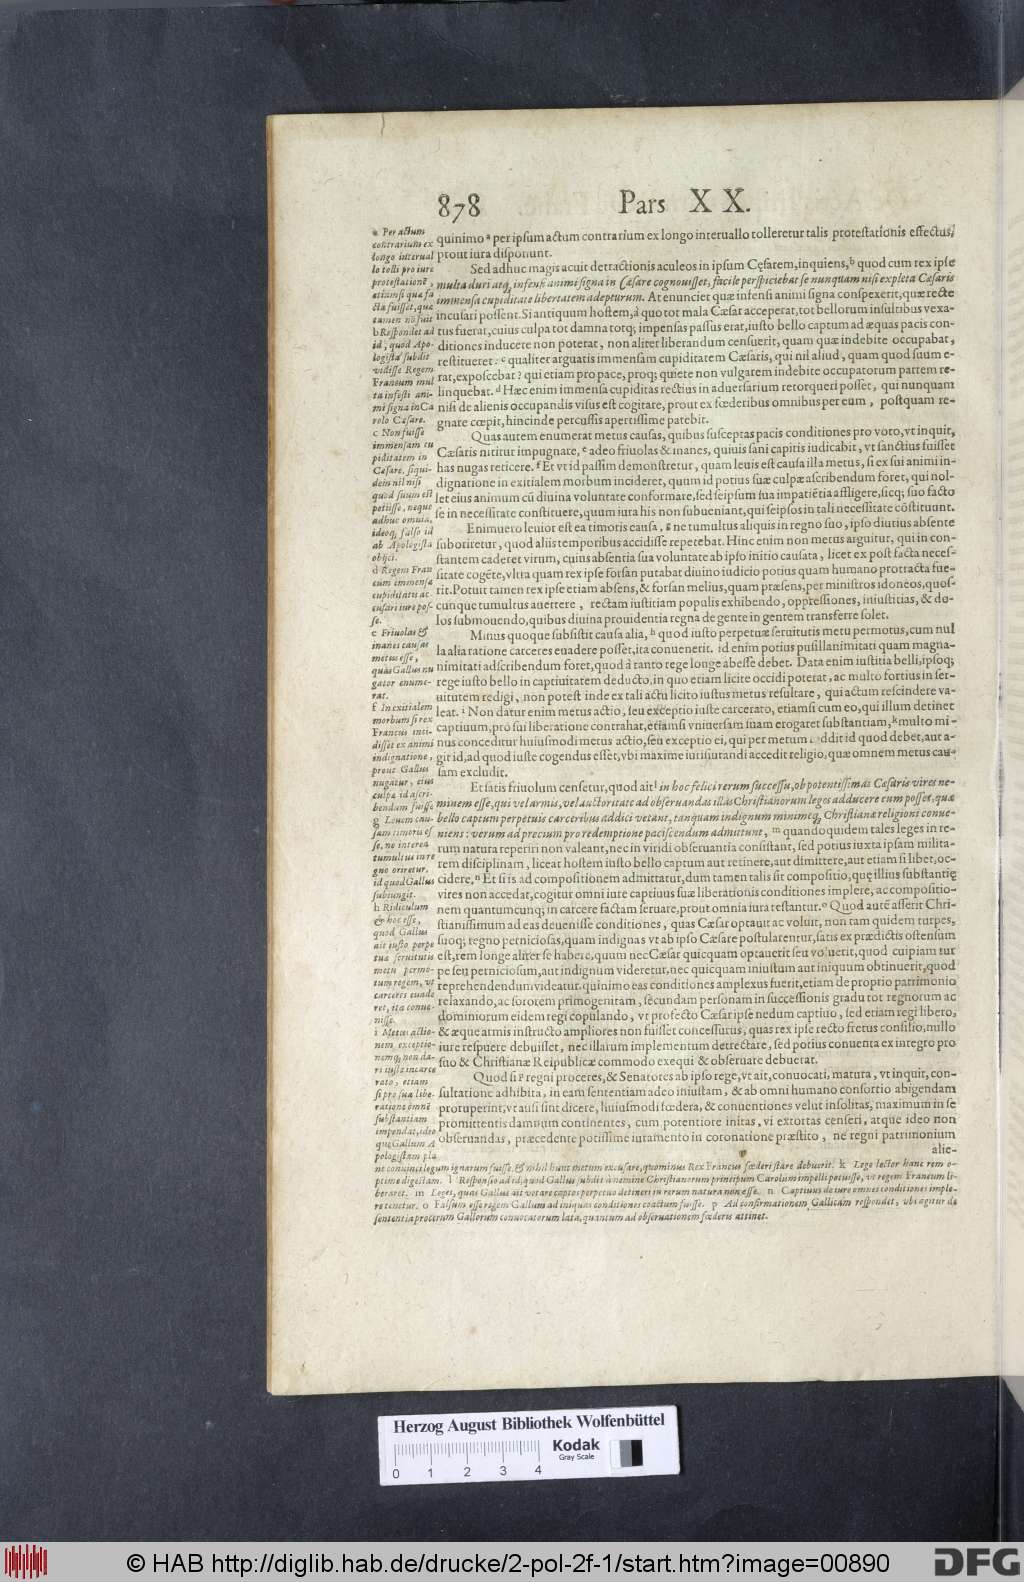 878 Pars XX.
quinimo ᵃ per ipsum actum contrarium ex longo interuallo tolleretur talis protestationis effectus,
prout iura disponunt.
Sed adhuc magis acuit detractionis aculeos in ipsum Cęsarem, inquiens, ᵇ quod cum rex ipse
multa duri atq; infensi animi signa in Cæsare cognouisset, facile perspiciebat se nunquam nisi expleta Cæsaris
immensa cupiditate libertatem adepturum. At enunciet quæ infensi animi signa conspexerit, quæ recte
incusari possent. Si antiquum hostem, à quo tot mala Cæsar acceperat, tot bellorum insultibus vexa-
tus fuerat, cuius culpa tot damna totq; impensas passus erat, iusto bello captum ad æquas pacis con-
ditiones inducere non poterat, non aliter liberandum censuerit, quam quæ indebite occupabat,
restitueret: ᶜ qualiter arguatis immensam cupiditatem Cæsaris, qui nil aliud, quam quod suum e-
rat, exposcebat? qui etiam pro pace, proq; quiete non vulgarem indebite occupatorum partem re-
linquebat. ᵈ Hæc enim immensa cupiditas rectius in aduersarium retorqueri posset, qui nunquam
nisi de alienis occupandis visus est cogitare, prout ex fœderibus omnibus per eum, postquam re-
gnare cœpit, hincinde percussis apertissime patebit.
Quas autem enumerat metus causas, quibus susceptas pacis conditiones pro voto, vt inquit,
Cæsaris nititur impugnare, ᵉ adeo friuolas & inanes, quiuis sani capitis iudicabit, vt sanctius fuisset
has nugas reticere. ᶠ Et vt id passim demonstretur, quam leuis est causa illa metus, si ex sui animi in-
dignatione in exitialem morbum incideret, quum id potius suæ culpæ ascribendum foret, qui nol-
let eius animum cū diuina voluntate conformare, sed seipsum sua impatiētia affligere, sicq; suo facto
se in necessitate constituere, quum iura his non subueniant, qui seipsos in tali necessitate cōstituunt.
Enimuero leuior est ea timoris causa, ᵍ ne tumultus aliquis in regno suo, ipso diutius absente
suboriretur, quod aliis temporibus accidisse repetebat. Hinc enim non metus arguitur, qui in con-
stantem caderet virum, cuius absentia sua voluntate ab ipso initio causata, licet ex post facta neces-
sitate cogēte, vltra quam rex ipse forsan putabat diuino iudicio potius quam humano protracta fue-
rit. Potuit tamen rex ipse etiam absens, & forsan melius, quam præsens, per ministros idoneos, quos-
cunque tumultus auertere, rectam iustitiam populis exhibendo, oppressiones, iniustitias, & do-
los submouendo, quibus diuina prouidentia regna de gente in gentem transferre solet.
Minus quoque subsistit causa alia, ʰ quod iusto perpetuæ seruitutis metu permotus, cum nul
la alia ratione carceres euadere posset, ita conuenerit. id enim potius pusillanimitati quam magna-
nimitati adscribendum foret, quod à tanto rege longe abesse debet. Data enim iustitia belli, ipsoq;
rege iusto bello in captiuitatem deducto, in quo etiam licite occidi poterat, ac multo fortius in ser-
uitutem redigi, non potest inde ex tali actu licito iustus metus resultare, qui actum rescindere va-
leat. ⁱ Non datur enim metus actio, seu exceptio iuste carcerato, etiamsi cum eo, qui illum detinet
captiuum, pro sui liberatione contrahat, etiamsi vniuersam suam erogaret substantiam, ᵏ multo mi-
nus conceditur huiusmodi metus actio, seu exceptio ei, qui per metum reddit id quod debet, aut a-
git id, ad quod iuste cogendus esset, vbi maxime iurisiurandi accedit religio, quæ omnem metus cau-
sam excludit.
Et satis friuolum censetur, quod ait ˡ in hoc felici rerum successu, ob potentissimas Cæsaris vires ne-
minem esse, qui vel armis, vel auctoritate ad obseruandas illas Christianorum leges adducere eum posset, quæ
bello captum perpetuis carceribus addici vetant, tanquam indignum minimeq; Christianæ religioni conue-
niens: verum ad precium pro redemptione paciscendum admittunt, ᵐ quandoquidem tales leges in re-
rum natura reperiri non valeant, nec in viridi obseruantia consistant, sed potius iuxta ipsam milita-
rem disciplinam, liceat hostem iusto bello captum aut retinere, aut dimittere, aut etiam si libet, oc-
cidere, ⁿ Et si is ad compositionem admittatur, dum tamen talis sit compositio, quę illius substantię
vires non accedat, cogitur omni iure captiuus suæ liberationis conditiones implere, ac compositio-
nem quantumcunq; in carcere factam seruare, prout omnia iura testantur. ᵒ Quod autē asserit Chri-
stianissimum ad eas deuenisse conditiones, quas Cæsar optauit ac voluit, non tam quidem turpes,
suoq; regno perniciosas, quam indignas vt ab ipso Cæsare postularentur, satis ex prædictis ostensum
est, rem longe aliter se habere, quum nec Cæsar quicquam optauerit seu voluerit, quod cuipiam tur
pe seu perniciosum, aut indignum videretur, nec quicquam iniustum aut iniquum obtinuerit, quod
reprehendendum videatur. quinimo eas conditiones amplexus fuerit, etiam de proprio patrimonio
relaxando, ac sororem primogenitam, secundam personam in successionis gradu tot regnorum ac
dominiorum eidem regi copulando, vt profecto Cæsar ipse nedum captiuo, sed etiam regi libero,
& æque armis instructo ampliores non fuisset concessurus, quas rex ipse recto fretus consilio, nullo
iure respuere debuisset, nec illarum implementum detrectare, sed potius conuenta ex integro pro
suo & Christianæ Reipublicæ commodo exequi & obseruare debuerat.
Quod si ᵖ regni proceres, & Senatores ab ipso rege, vt ait, conuocati, matura, vt inquit, con-
sultatione adhibita, in eam sententiam adeo iniustam, & ab omni humano consortio abigendam
proruperint, vt ausi sint dicere, huiusmodi fœdera, & conuentiones velut insolitas, maximum in se
promittentis damnum continentes, cum potentiore initas, vi extortas censeri, atque ideo non
obseruandas, præcedente potissime iuramento in coronatione præstito, ne regni patrimonium
alie-
a Per actum
contrarium ex
longo interual
lo tolli pro iure
protestationē,
etiamsi quæ fa
cta fuisset, quæ
tamen nō fuit
b Respondet ad
id, quod Apo-
logista subdit
vidisse Regem
Francum mul
ta infesti ani-
mi signa in Ca
rolo Cæsare.
c Non fuisse
immensam cu
piditatem in
Cæsare, siqui-
dem nil nisi
quod suum est
petiisse, neque
adhuc omnia,
ideoq; falso id
ab Apologista
obijci.
d Regem Fran
cum immensæ
cupiditatis ac-
cusari iure pos-
se.
e Friuolas &
inanes causas
metus esse,
quas Gallus nu
gator enume-
rat.
f In exitialem
morbum si rex
Francus inci-
disset ex animi
indignatione,
prout Gallus
nugatur, eius
culpæ id ascri-
bendum fuisse
g Leuem cau-
sam timoris es
se, ne interea
tumultus in re
gno oriretur.
id quod Gallus
subiungit.
h Ridiculum
& hoc esse,
quod Gallus
ait iusto perpe
tuæ seruitutis
metu permo-
tum regem, vt
carceres euade
ret, ita conue-
nisse.
i Metus actio-
nem, exceptio-
nemq; non da-
ri iuste incarce
rato, etiam
si pro sua libe-
ratione omnē
substantiam
impendat, ideo
que Gallum A
pologistam pla
ne conuinci legum ignarum fuisse, & nihil hunc metum excusare, quominus Rex Francus fœderi stare debuerit. k Lege lector hanc rem o-
ptime digestam. l Responsio ad id, quod Gallus subdit à nemine Christianorum principum Carolum impelli potuisse, vt regem Francum li-
beraret. m Leges, quas Gallus ait vetare captos perpetuo detineri in rerum natura non esse. n Captiuus de iure omnes conditiones imple-
re tenetur. o Falsum esse regem Gallum ad iniquas conditiones coactum fuisse. p Ad confirmationem Gallicam respondet, vbi agitur de
sententia procerum Gallorum conuocatorum lata, quantum ad obseruationem fœderis attinet.
Herzog August Bibliothek Wolfenbüttel
0 1 2 3 4
Kodak
Gray Scale
© HAB http://diglib.hab.de/drucke/2-pol-2f-1/start.htm?image=00890
DFG